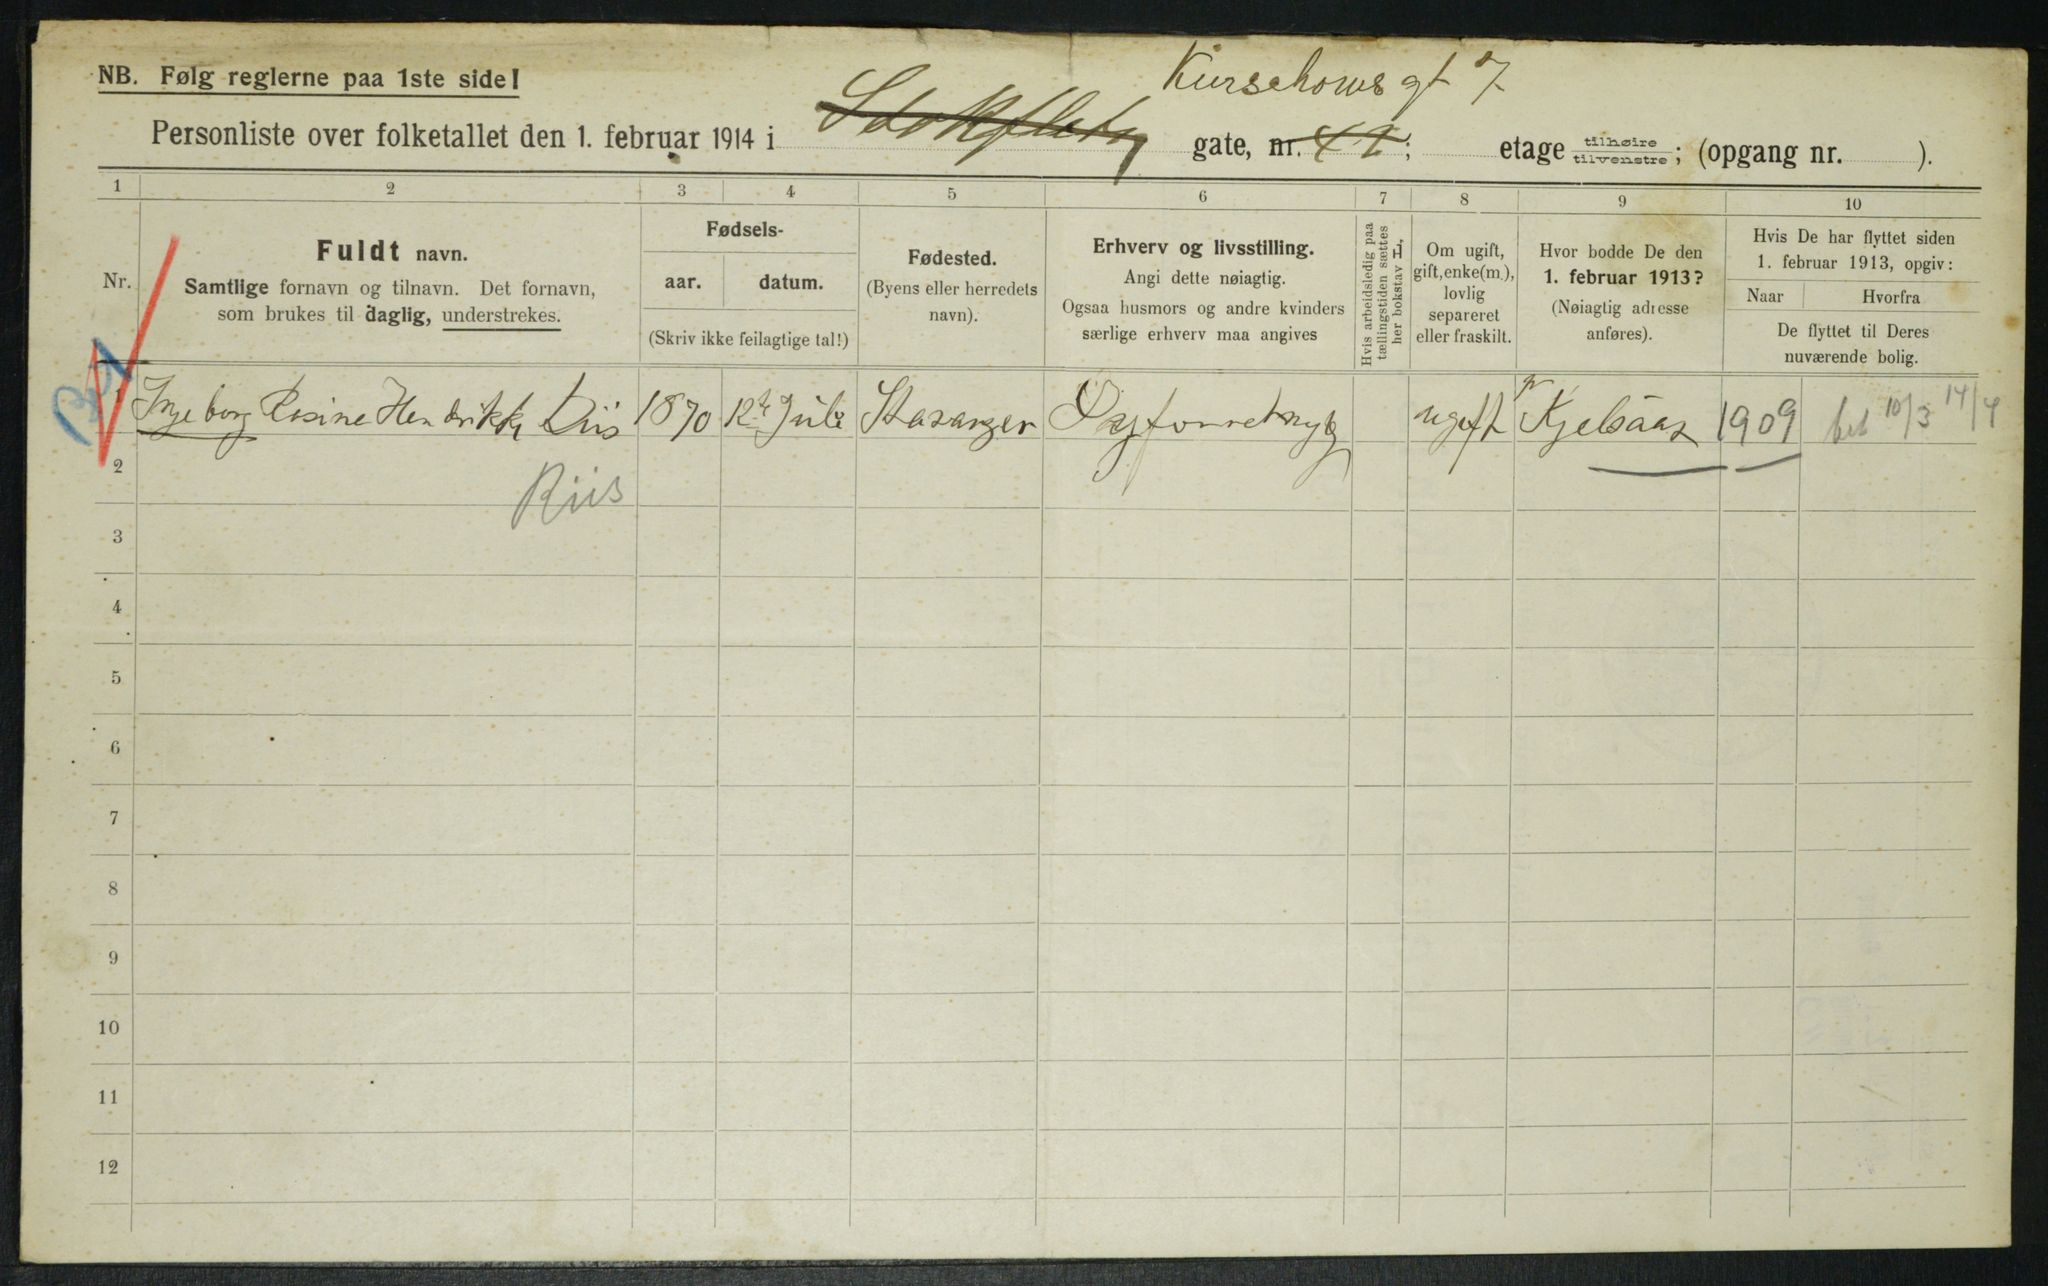 Kirschows gt 7
NB. Følg reglerne paa 1ste side!
Personliste over folketallet den 1. februar 1914 i Stokflet gate, nr. 42; etage tilhøire tilvenstre; (opgang nr. ).
1 2 3 4 5 6 7 8 9 10
Nr.
Fuldt navn.
Samtlige fornavn og tilnavn. Det fornavn,
som brukes til daglig, understrekes.
Fødsels-
aar. datum.
(Skriv ikke feilagtige tal!)
Fødested.
(Byens eller herredets
navn).
Erhverv og livsstilling.
Angi dette nøiagtig.
Ogsaa husmors og andre kvinders
særlige erhverv maa angives
Hvis arbeidsledig paa
tællingstiden sættes
her bokstav L.
Om ugift,
gift, enke(m.),
lovlig
separeret
eller fraskilt.
Hvor bodde De den
1. februar 1913?
(Nøiagtig adresse
anføres).
Hvis De har flyttet siden
1. februar 1913, opgiv:
Naar Hvorfra
De flyttet til Deres
nuværende bolig.
1 Ingeborg Rosine Henrikke Diis 1870 12te Juli Stavanger ugift Kjelsaas 1909 10/3 14/4
2
Riis
3
4
5
6
7
8
9
10
11
12